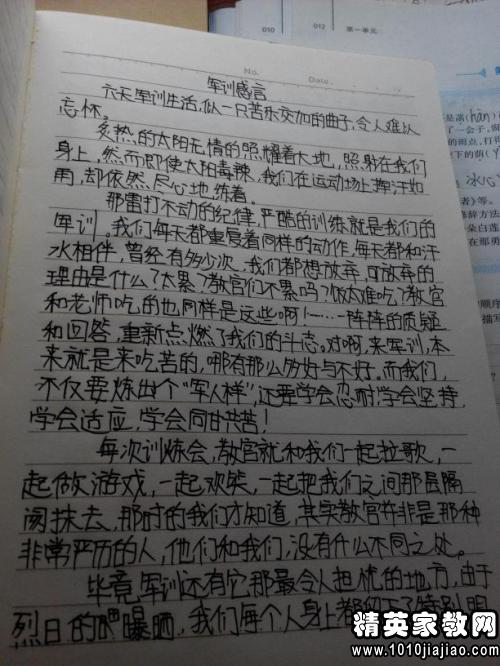 010
012 第一单元
No.
Date.
军训感言
六天军训生活,似一只苦乐交加的曲子,令人难以
忘怀。
炙热的太阳无情的照耀着大地,照射在我们
身上,然而即使太阳毒辣,我们在运动场上挥汗如
雨,却依然尽心地练着。
那雷打不动的纪律,严酷的训练就是我们的
军训。我们每天都重复着同样的动作,每天都和汗
水相伴,曾经有多少次,我们都想放弃,可放弃的
理由是什么?太累?教官们不累吗?饭太难吃?教官
和老师吃的也同样是这些啊!……一阵阵的质疑
和回答,重新点燃了我们的斗志。对啊,来军训,本
来就是来吃苦的,哪有那么多好与不好,而我们,
不仅要炼出个“军人样”,还要学会忍耐,学会坚持,
学会适应,学会同甘共苦!
每次训练会,教官就和我们一起拉歌,一
起做游戏,一起欢笑,一起把我们之间那层隔
阂抹去,那时的我们才知道,其实教官并非是那种
非常严厉的人,他们和我们,没有什么不同之处。
毕竟军训还有它那最令人担忧的地方,由于
烈日的曝晒,我们每个人身上都
精英家教网
www.1010jiajiao.com